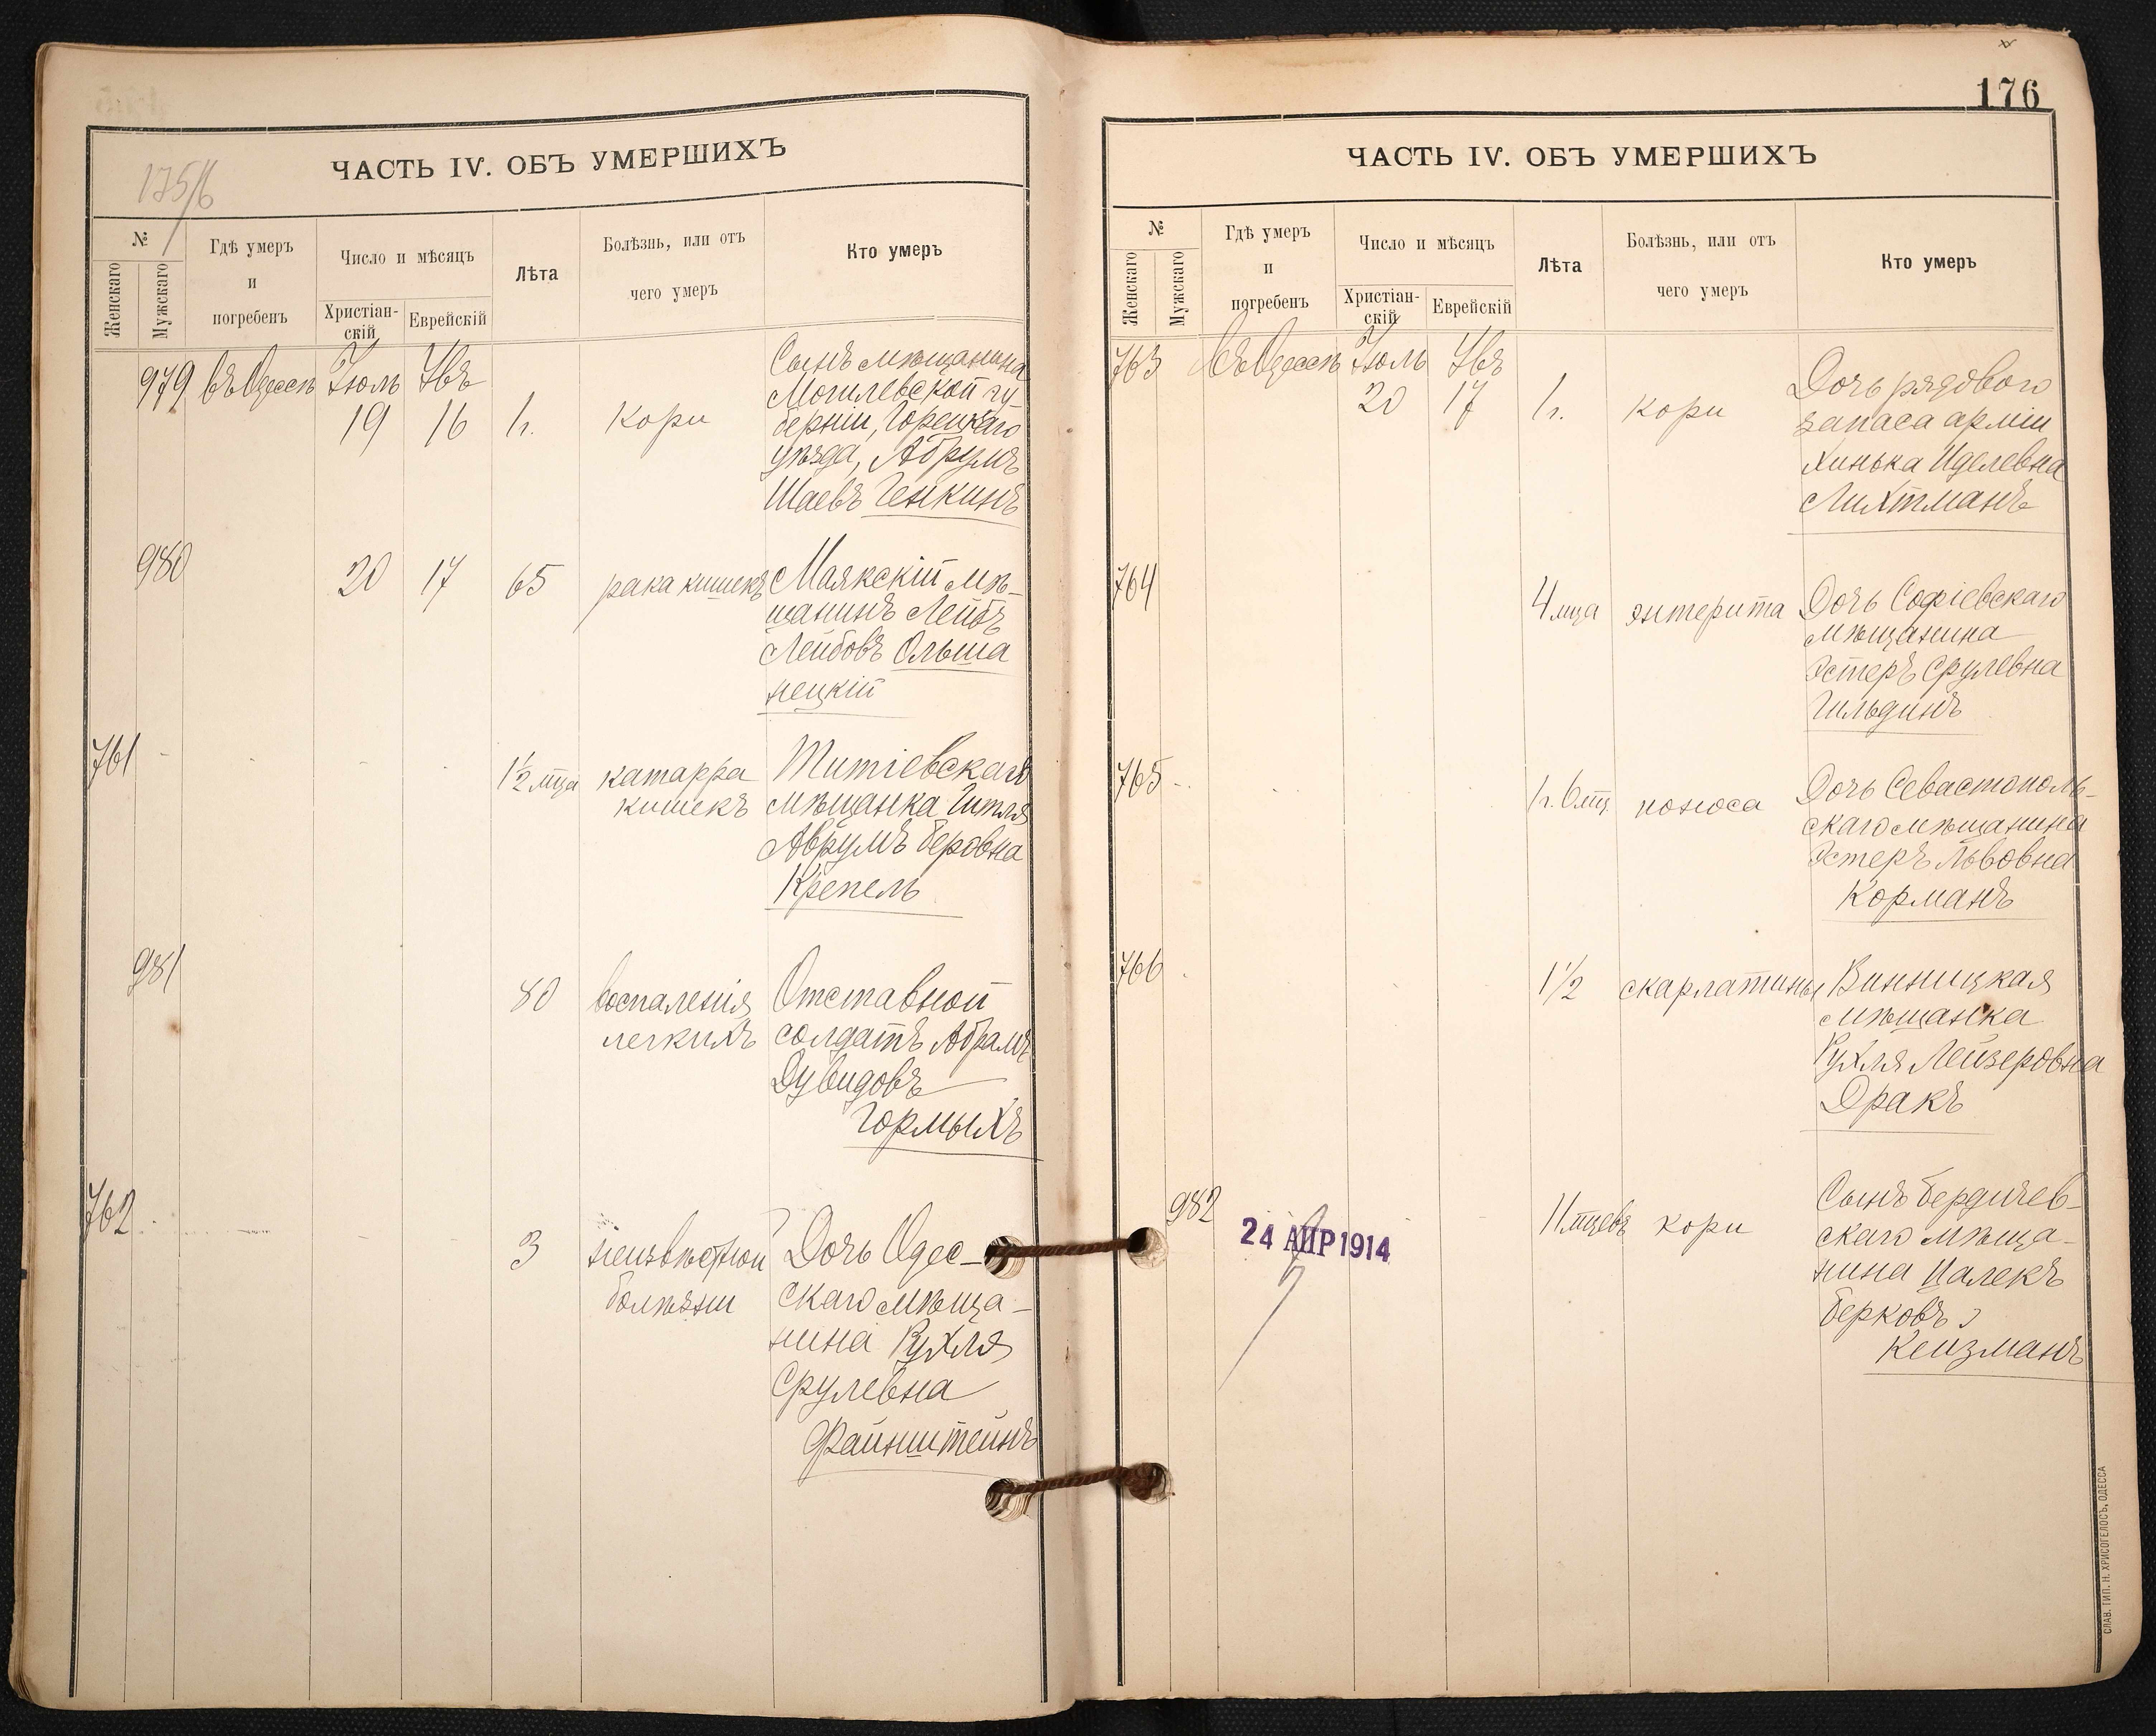 175/6
ЧАСТЬ IV. ОБЪ УМЕРШИХЪ
№
Женскаго
Мужскаго
Гдѣ умеръ
и
погребенъ
Число и мѣсяцъ
Христіан-
скій
Еврейскій
Лѣта
Болѣзнь, или отъ
чего умеръ
Кто умеръ
979 въ Одессѣ Іюль Ѳвъ
19 16 1 г. кори
Сынъ мѣщанина
Могилевской гу-
берніи, Горецкаго
уѣзда, Абрумъ
Шаевъ Генкинъ
980 20 17 65 рака кишекъ
Маякскій мѣ-
щанинъ Лейбъ
Лейбовъ Ольша
нецкій
761 - - - 1½ мца катарра
кишекъ
Титіевскаго
мѣщанка Гитля
Аврумъ Беровна
Крепель
981 80 воспаленія
легкихъ
Отставной
солдатъ Абрамъ
Дувидовъ
Гормыхъ
762 - - 3 неизвѣстной
болѣзни
Дочь Одес-
скаго мѣща-
нина Рухля
Срулевна
Файнштейнъ
176
ЧАСТЬ IV. ОБЪ УМЕРШИХЪ
№
Женскаго
Мужскаго
Гдѣ умеръ
и
погребенъ
Число и мѣсяцъ
Христіан-
скій
Еврейскій
Лѣта
Болѣзнь, или отъ
чего умеръ
Кто умеръ
763 въ Одессѣ Іюль
20 17 1 г. кори
Дочь рядового
запаса арміи
Хинька Иделевна
Лихтманъ
764 4 мца энтерита
Дочь Софіевскаго
мѣщанина
Эстеръ Срулевна
Гильдинъ
765 1 г. 6 мц поноса
Дочь Севастополь-
скаго мѣщанина
Эстеръ Львовна
Корманъ
766 1½ скарлатины
Винницкая
мѣщанка
Рухля Лейзеровна
Дракъ
982 11 мцевъ кори
24 АПР 1914
Сынъ Бердичев-
скаго мѣща-
нина Цалекъ
Берковъ
Кейзманъ
СЛАВ. ТИП. Н. ХРИСОГЕЛОСЪ, ОДЕССА